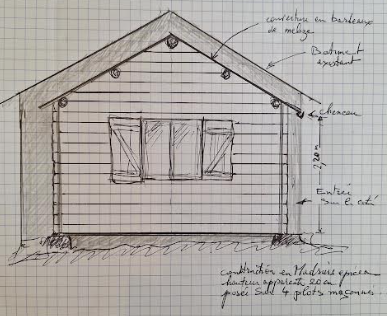 couverture en bardeaux
de mélèze
Batiment
existant
cheneau
2,20 m
Entrée
sur le coté
construction en Madriers épicea
hauteur apparente 20 cm
posée sur 4 plots maçonnés.